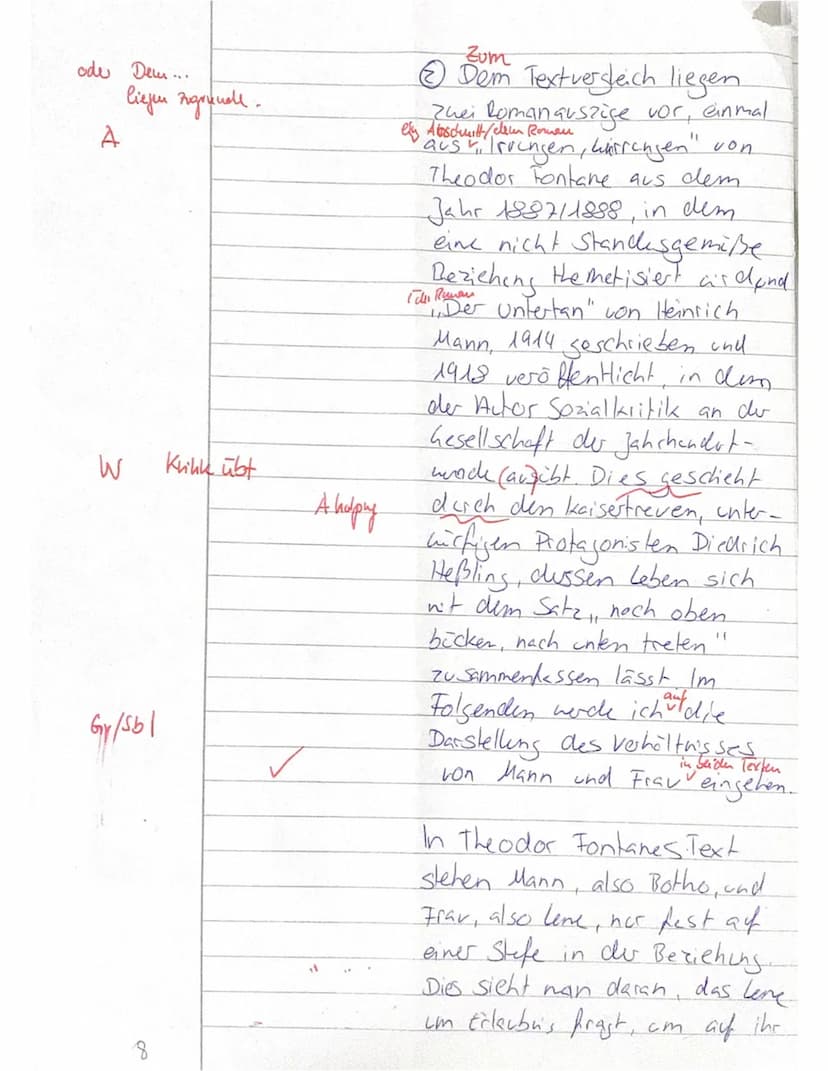 Zum
oder Dem...
liegen zugrunde.
② Dem Textvergleich liegen
zwei Romanauszüge vor, einmal
A
ein Abschnitt/dem Roman
aus „Irrungen, Wirrungen" von
Theodor Fontane aus dem
Jahr 1887/1888, in dem
eine nicht Standesgemäße
Beziehung thematisiert wird und
der Roman
„Der Untertan" von Heinrich
Mann, 1914 geschrieben und
1918 veröffentlicht, in dem
der Autor Sozialkritik an der
Gesellschaft der Jahrhundert-
W Kritik übt
wende (aus)übt. Dies geschieht
A holprig
durch den kaisertreuen, unter-
würfigen Protagonisten Diedrich
Heßling, dessen Leben sich
mit dem Satz „nach oben
bücken, nach unten treten"
zusammenfassen lässt. Im
auf
Folgenden werde ich die
Gr/Sb |
Darstellung des Verhältnisses
in beiden Texten
von Mann und Frau eingehen.
In Theodor Fontanes Text
stehen Mann, also Botho, und
Frau, also Lene, nur fast auf
einer Stufe in der Beziehung.
Dies sieht man daran, das Lene
um Erlaubnis fragt, um auf ihr
8